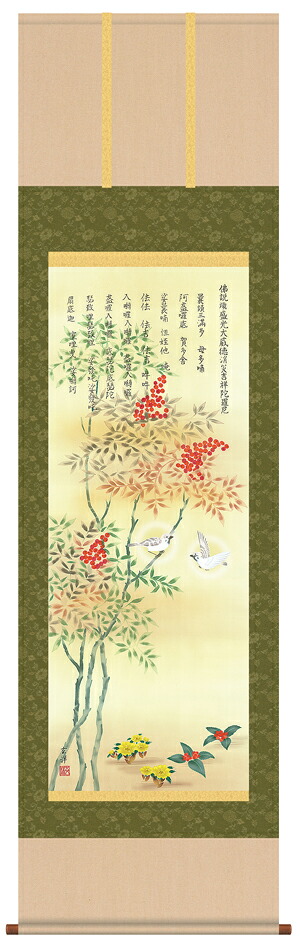 佛説熾盛光大威徳消災吉祥陀羅尼
曩謨三満多 母多喃
阿盋囉底 賀多舍
娑曩喃 怛姪他 唵
佉佉 佉呬 佉呬 吽吽
入嚩囉入嚩囉 盋囉入嚩囉
盋囉入嚩囉 底瑟姹
瑟致哩瑟致哩 娑發吒
扇底迦 室哩曳 娑嚩訶